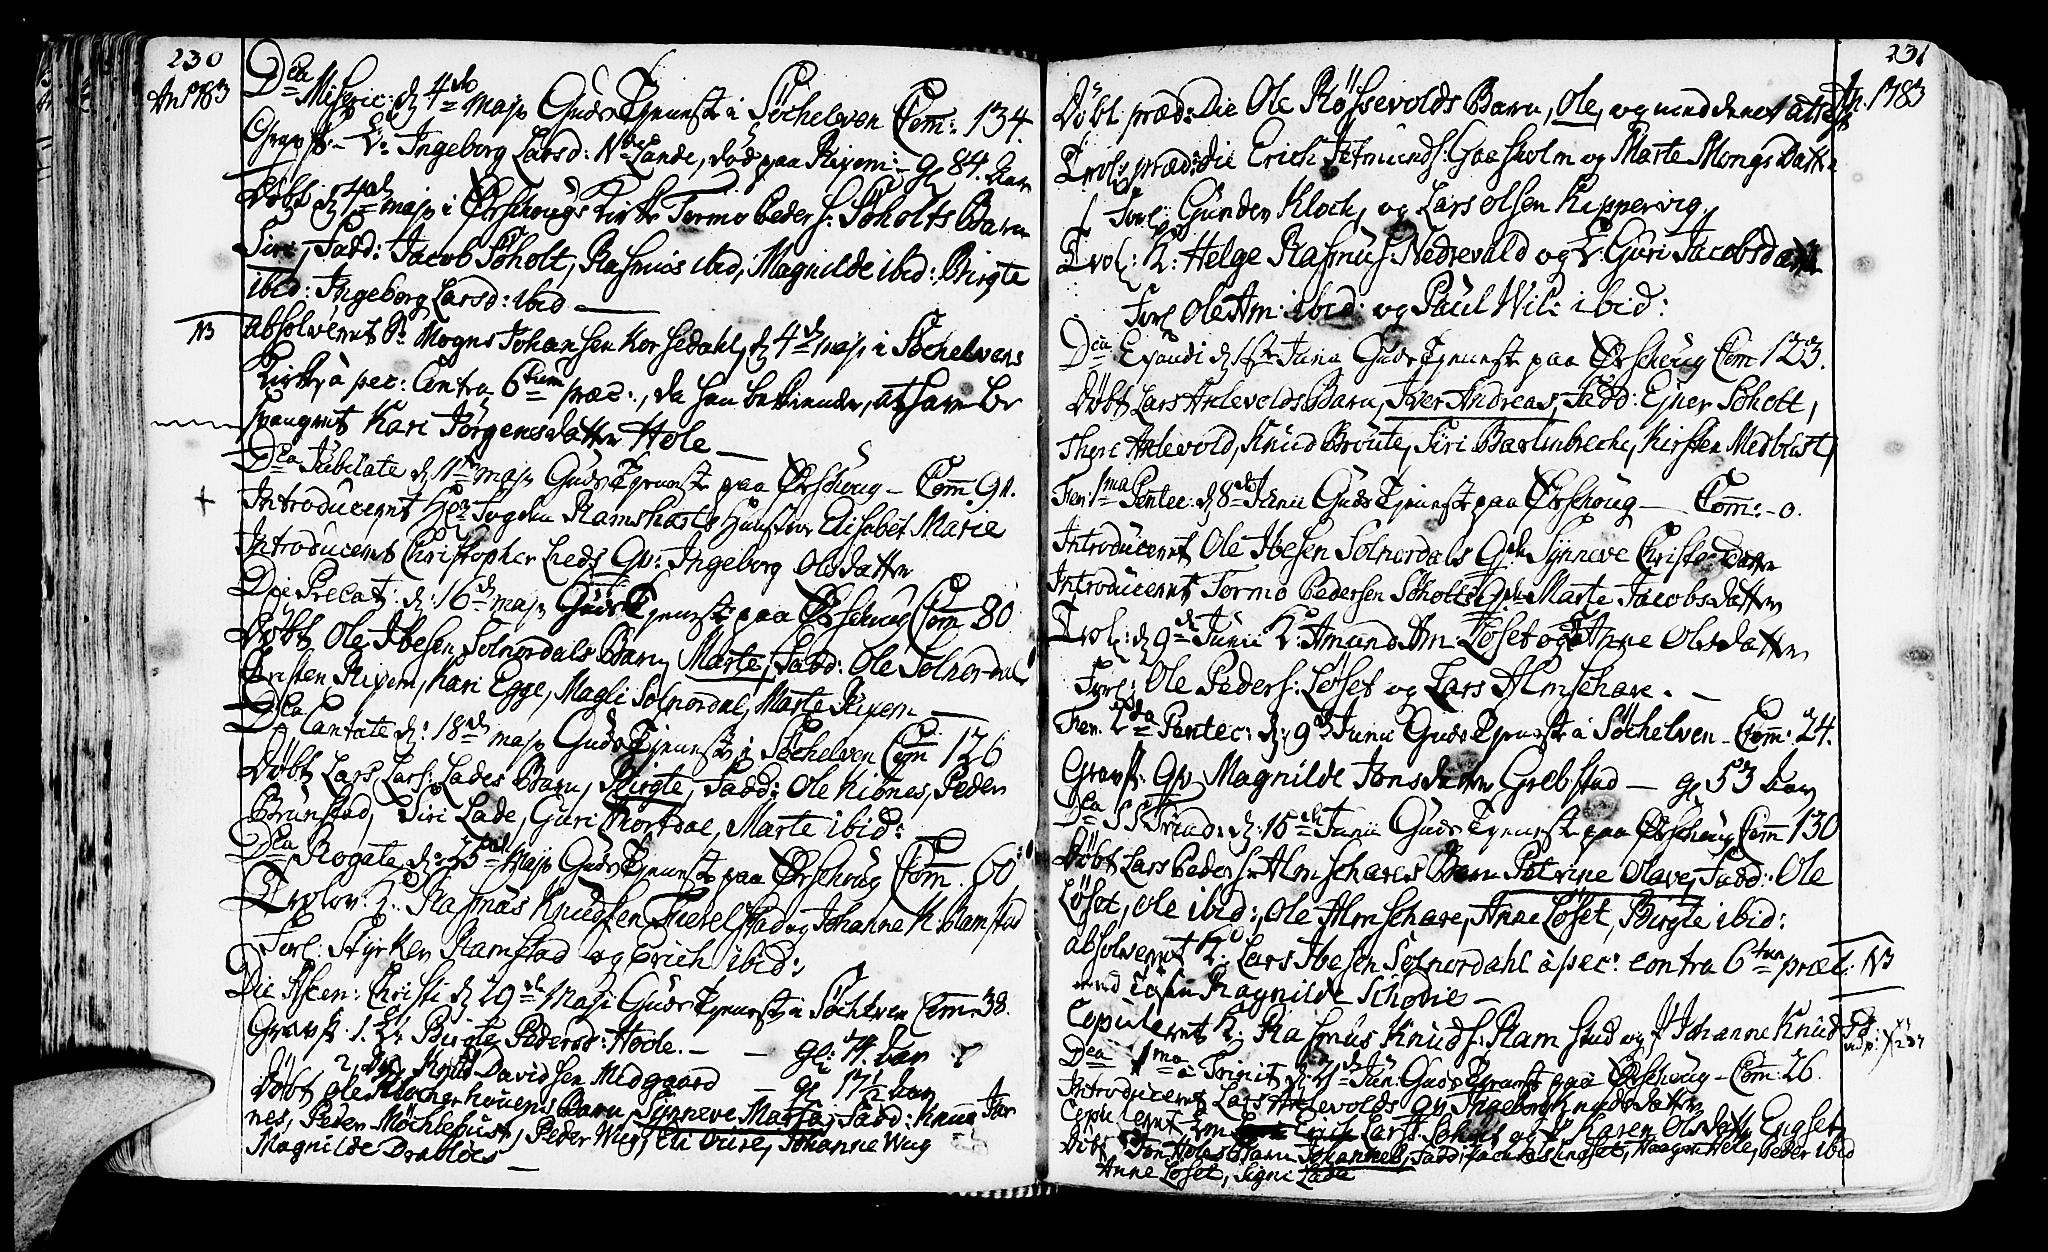 230
An 1783
Dca Miseric: d 4de Maji Guds Tjeneste i Söchelven Com: 134.
Gravf. Ingeborg Larsd: Lande, död paa Ripem: gl 84 Aar
Döbt d 4de maji i Ørschougs Kirke Tormo Peders: Söholts Barn
Siri, Fadd: Jacob Söholt, Rasmus ibid, Magnilde ibid: Birgte
ibid: Ingeborg Larsd: ibid
NB
absolveret Mogns Johansen Korsedahl, d 4de maji i Söchelvens
Kirke, à pec: Contra 6tum præc:, da han bekiender, at have be
svangret Kari Jörgensdatter Hole
Dca Jubilate d 11te maji Guds Tjeneste paa Ørschoug Com 91.
Introduceret Ramsharts Hustrue Elisabet Marie
Introduceret Christopher Leeds Qv: Ingeborg Olsdatter
Die Precat: d: 16de maji Guds Tjeneste paa Ørschoug Com 80
Döbt Ole Ibesen Solnordals Barn Marte, Fadd: Ole Solnordal
Kristen Ripem, Kari Egge, Magli Solnordal, Marte Ripem
Dca Cantate d: 18de maji Guds Tjeneste i Söchelven Com 126
Döbt Lars Lars: Lades Barn, Birgte, Fadd: Ole Kibnes, Peder
Brunstad, Siri Lade, Guri Nortdal, Marte ibid:
Dca Rogate d: 25de Maji Guds Tjeneste paa Ørschoug Com. 60
Trolov: K: Rasmus Knudsen og Johanne K. Ramstad
Forl: Styrker Ramstad og Erich ibid:
Die Ascen: Christi d 29de Maji Guds Tjeneste i Söchelven Com 38.
Gravf. 1. Birgte Pedersd: Hoole. gl: Aar
2, Davidsen Midgaard gl 17½ Aar
Döbt Ole Klocherhouens Barn Synneve Marta, Fadd: Knud Jar
nes, Peder Möchlebust, Peder Wug, Eli Ure, Johanne Wug
Magnilde Drabløes
231
An. 1783
Döbt præd: Die Ole Røssevolds Barn, Ole, og med dennes attest
Trol: præd: die Erich Ifmunds: Gaasholm og Marte Mongs Datter
Forl: Gunder Kloch, og Lars Olsen Kippervig
Trol: K: Helge Rasmus: Nedrevald og Guri Jacobsdatter
Forl Ole Am: ibid: og Paul Wil: ibid:
Dca Exaudi d 1ste Junii Guds Tjeneste paa Ørschoug Com 123.
Döbt Lars Arlevolds Barn, Iver Andreas, Fadd: Ejner Söholt,
Arlevold, Knud Broute, Siri, Kirsten Medbust,
Fer: 1ma Pentec: d 8de Junii Guds Tjeneste paa Ørschoug Com:-0.
Introduceret Ole Ibesen Solnordals Synneve Christensdatter
Introduceret Tormo Pedersen Söholts Marte Jacobsdatter
Trol: d 9de Junii K: Amund Am Löset og Anne Olsdatter
Forl: Ole Peders: Löset og Lars Almschare.
Fer: 2da Pentec: d: 9de Junii Guds Tjeneste i Söchelven Com: 24.
Gravf: Qv Magnilde Jonsdatter Grebstad gl 53 Aar
Dca SS Trinit: d: 15de Junii Guds Tjeneste paa Ørschoug Com 130
Döbt Lars Peders: Almschares Barn Petrine Olave, Fadd: Ole
Löset, Ole ibid:, Ole Almschare, Anne Löset, Birgte ibid:
absolveret K: Lars Ibesen Solnordahl à pec: contra 6tum præc:
NB
med Ragnilde Schodie
Copuleret K: Rasmus Knuds: Ramstad og Johanne Knudsd:
Dca 1ma à Trinit d: 21de Jun: Guds Tjeneste paa Ørschoug Com: 26.
Introduceret Lars Arlevolds Qv Ingeborg Knudsdatter
Copuleret Erich Lars: og Karen Olsdatter Engset
Döbt Jon Holes Barn Johannes, Fadd: Lingset, Haagen Hole, Peder ibid
Anne Löset, Signi Lade